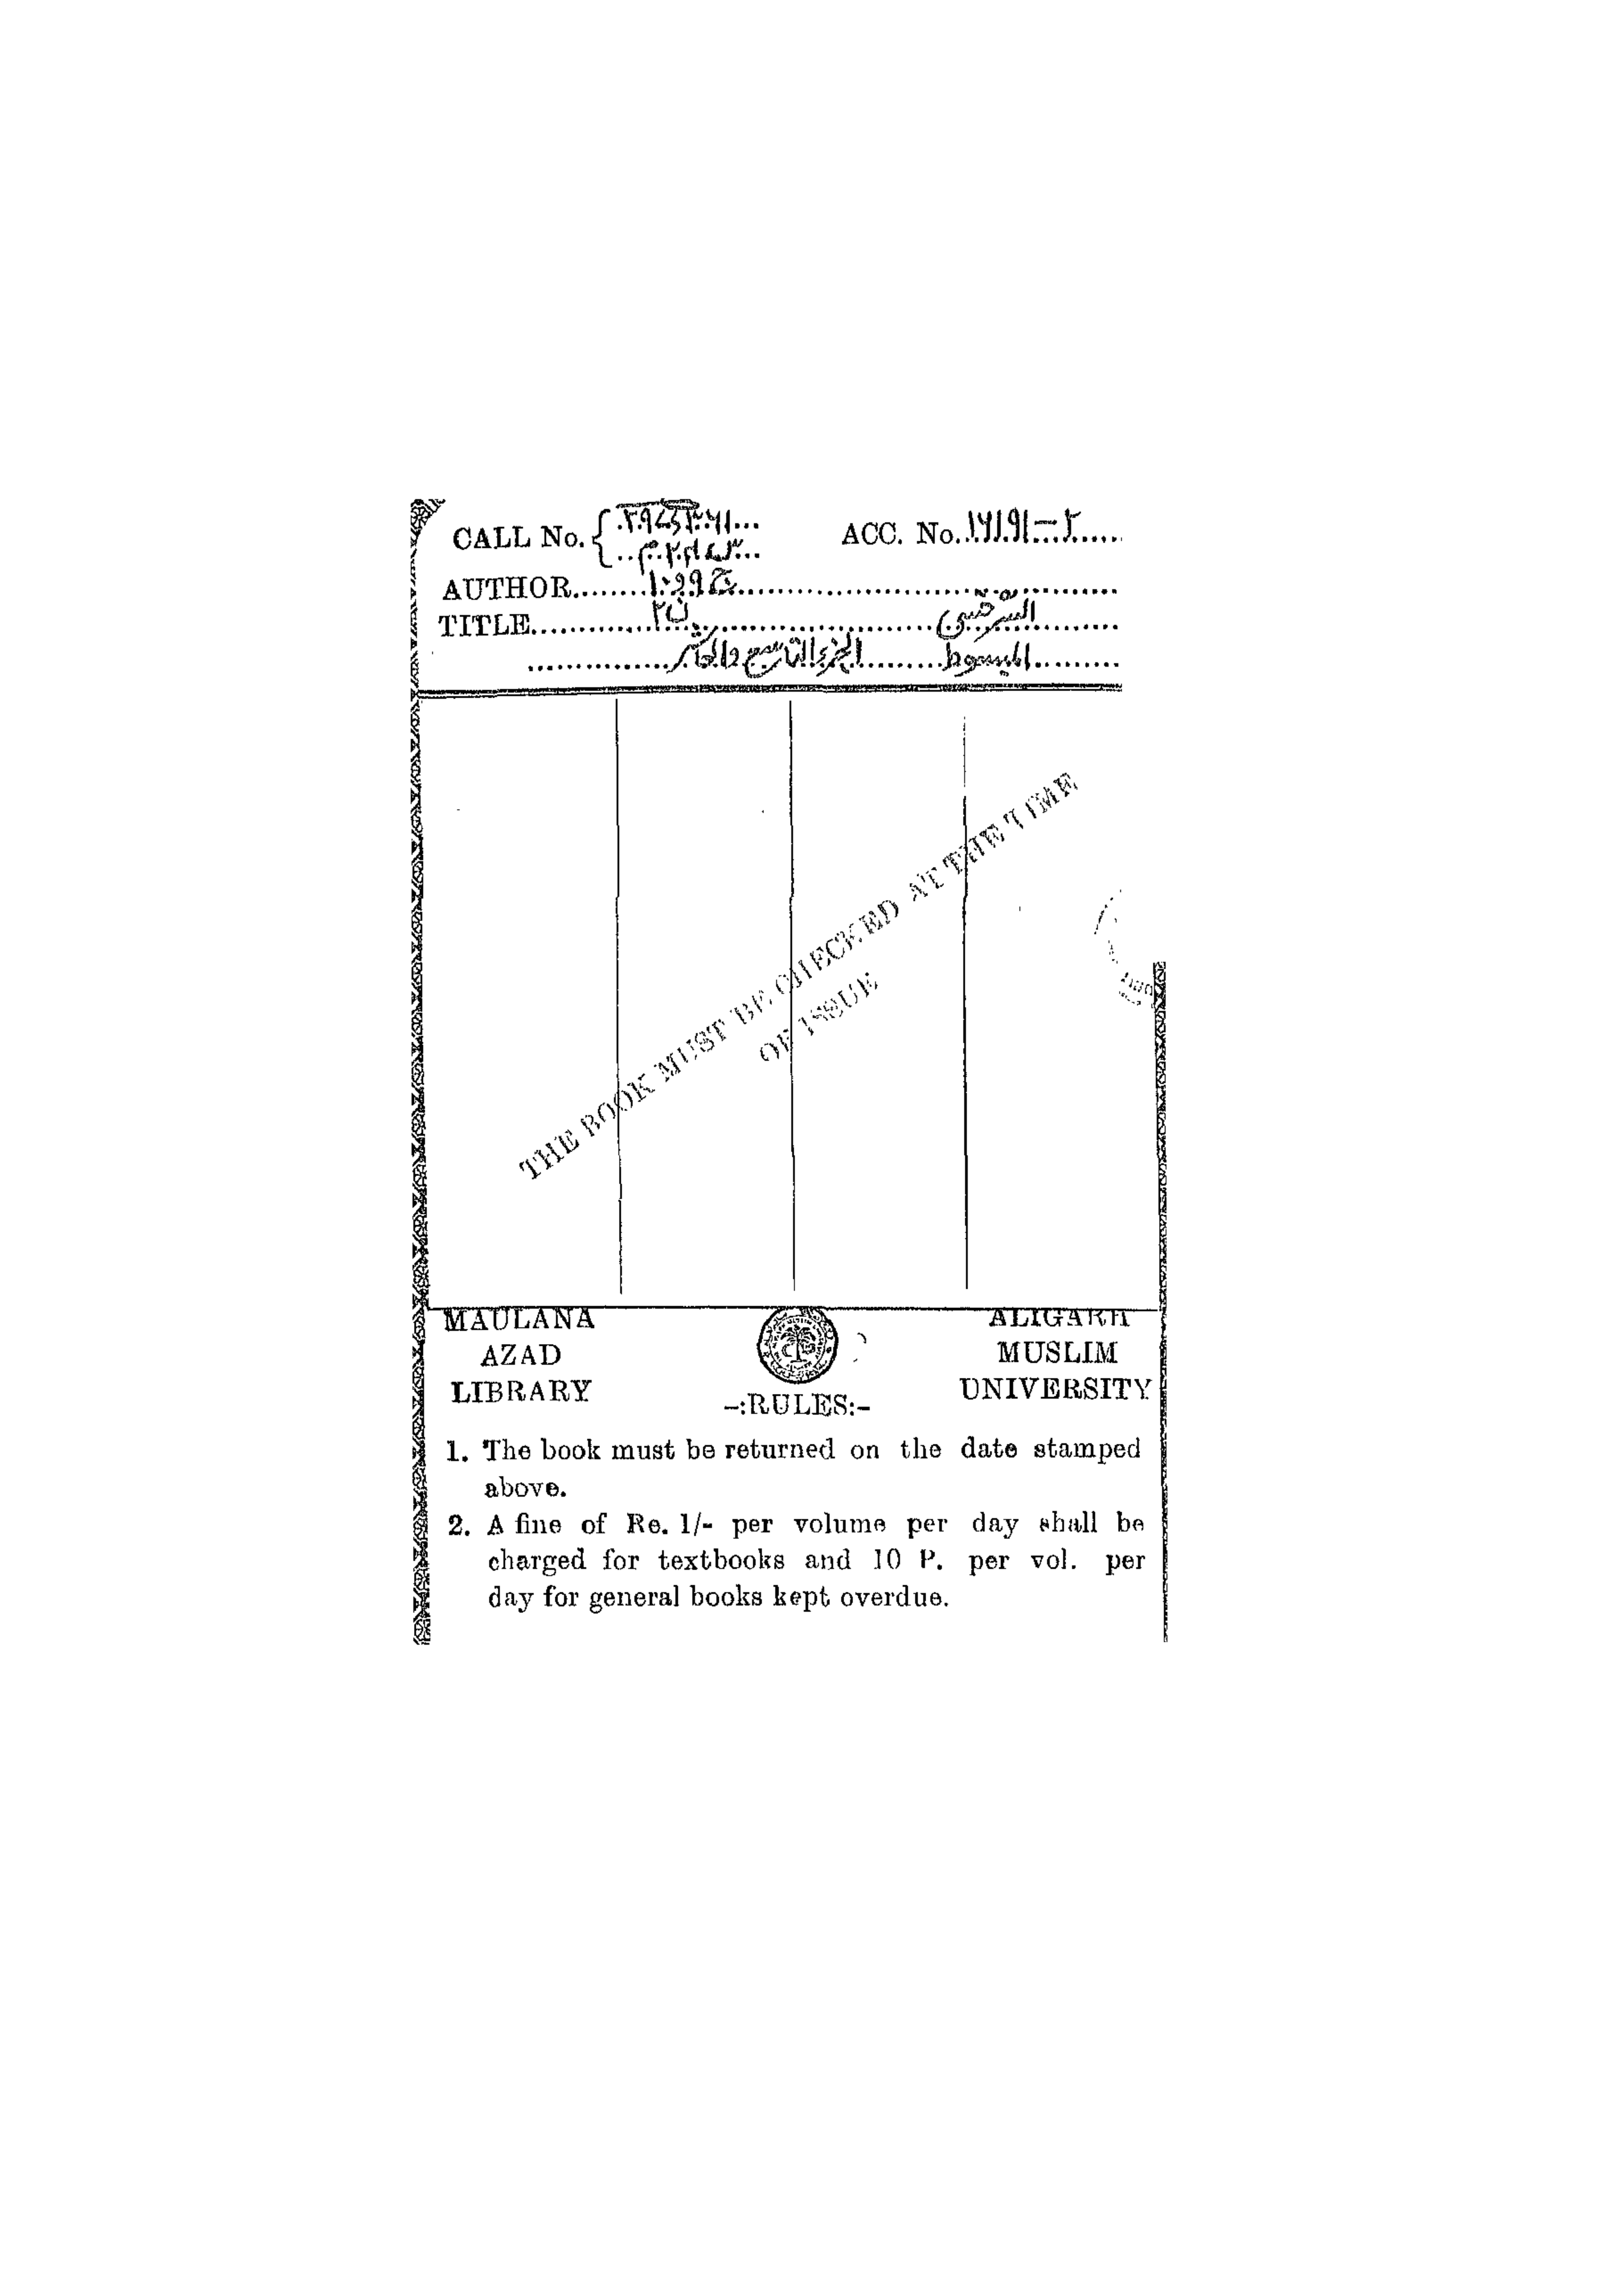 CALL No. { ACC. No. ۱۶۱۹۱-۲
AUTHOR ج ۹ و ۱۰
TITLE ن۲ السرخسی
المبسوط الجزء التاسع والعاشر
THE BOOK MUST BE CHECKED AT THE TIME
OF ISSUE
MAULANA AZAD LIBRARY
ALIGARH MUSLIM UNIVERSITY
-:RULES:-
1. The book must be returned on the date stamped
above.
2. A fine of Re. 1/- per volume per day shall be
charged for textbooks and 10 P. per vol. per
day for general books kept overdue.